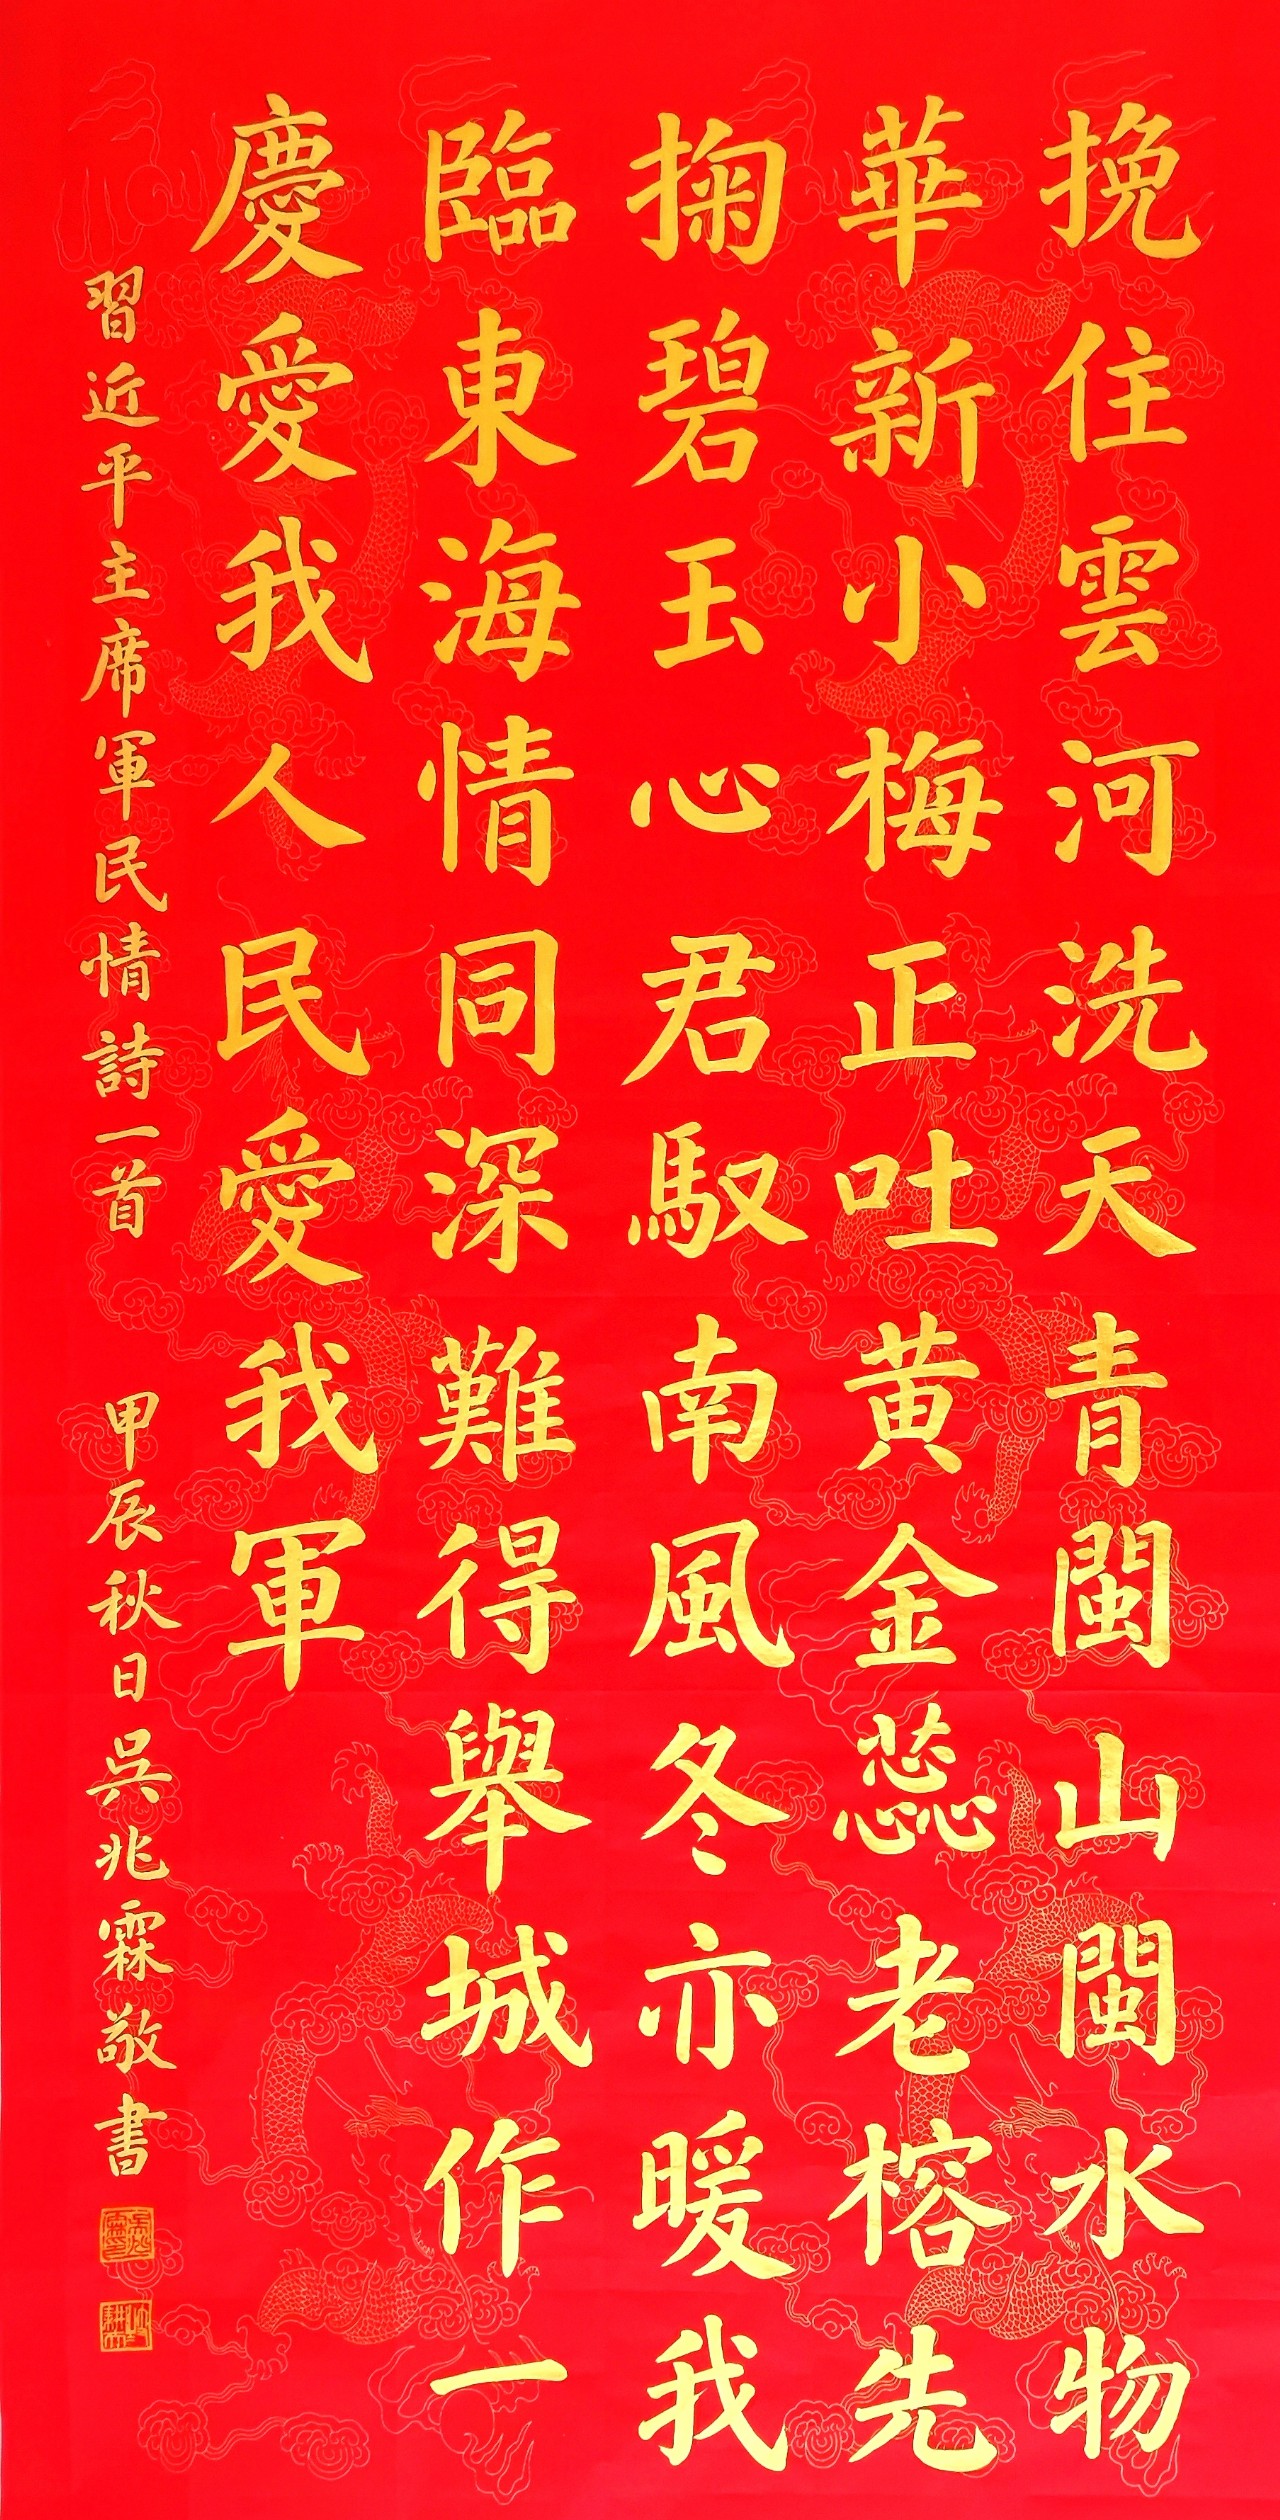 挽住雲河洗天青閩山閩水物
華新小梅正吐黄金蕊老榕先
掬碧玉心君馭南風冬亦暖我
臨東海情同深難得舉城作一
慶愛我人民愛我軍
習近平主席軍民情詩一首 甲辰秋日吳兆霖敬書